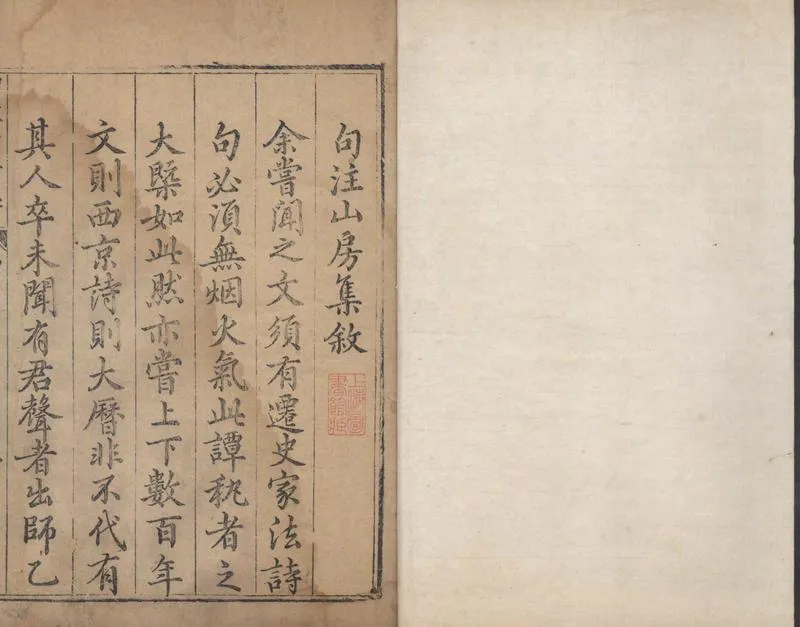 句注山房集敘
上海圖書館藏
余嘗聞之文須有遷史家法詩
句必湏無烟火氣此譚秇者之
大槩如此然亦嘗上下數百年
文則西京詩則大曆非不代有
其人卒未聞有君聲者出師乙